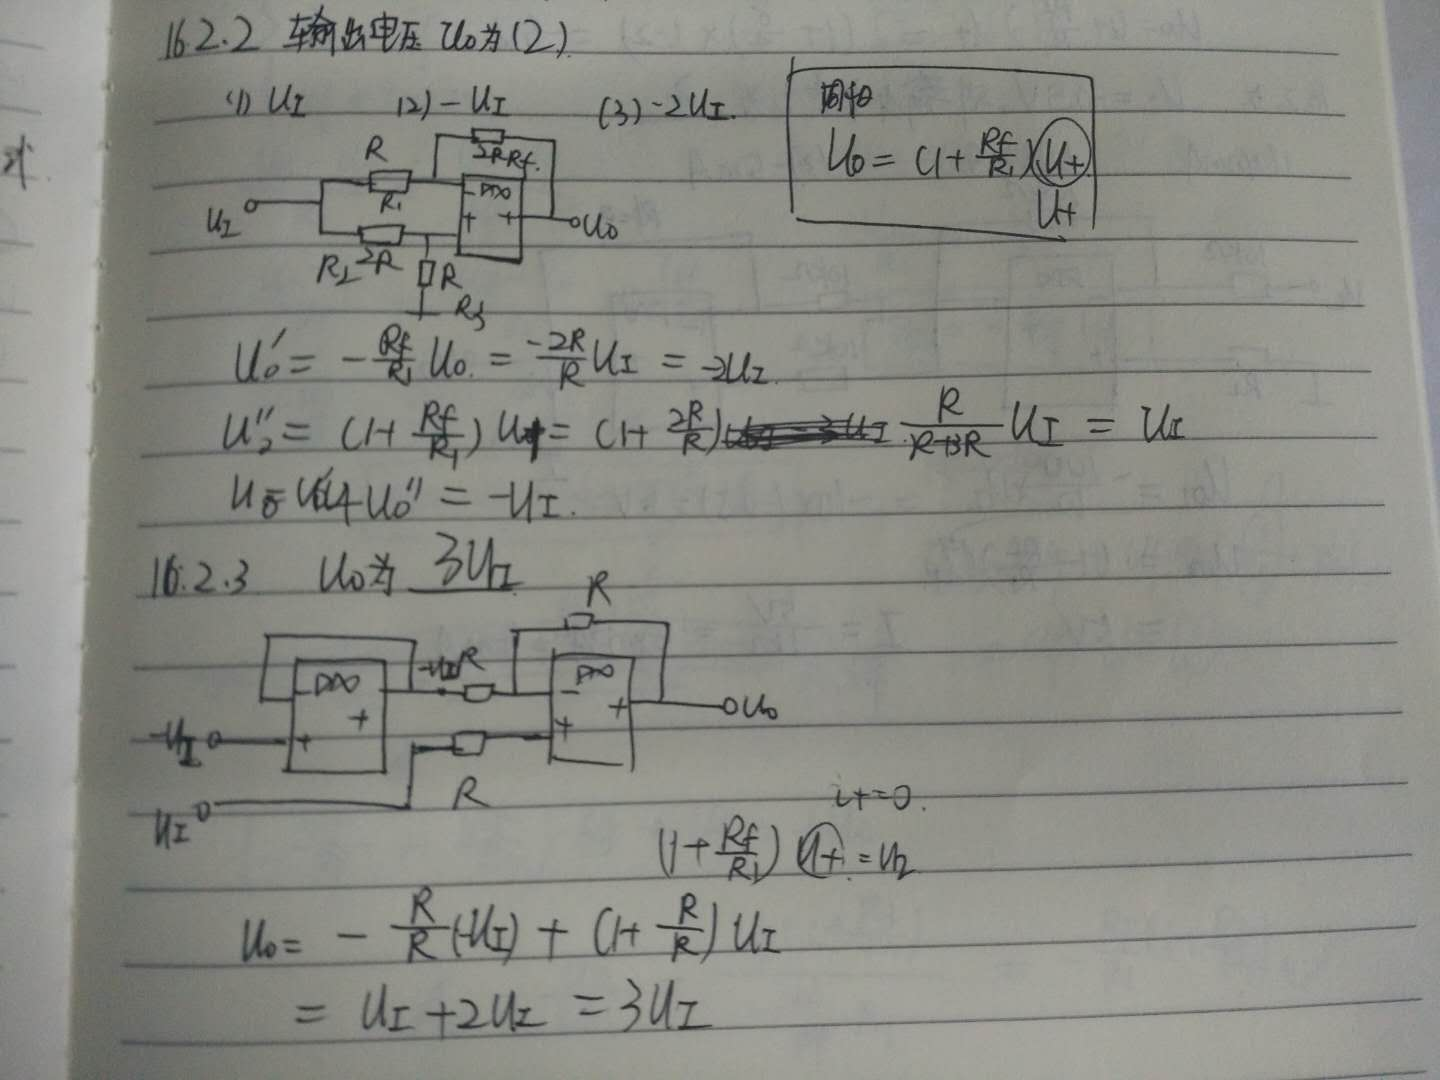 16.2.2 输出电压 U₀为(2)
(1) U_I (2) -U_I (3) -2U_I.
同相
U₀ = (1 + Rf/R₁) U+
U+
R
2R Rf.
R₁
▷∞
- +
+
U_I
U₀
R₂ 2R
R
R₃
U₀′ = - Rf/R₁ U₀. = -2R/R U_I = -2U_I.
U₂″ = (1 + Rf/R₁) U+ = (1 + 2R/R) R/R+3R U_I = U_I
U₀ = U₀′ + U₀″ = -U_I.
16.2.3 U₀为 3U_I
R
-U_I R
- ▷∞
+
+
- ▷∞
+
+
U₀
-U_I
R
U_I
i+=0.
(1 + Rf/R₁) U+. = U₂
U₀ = - R/R (-U_I) + (1 + R/R) U_I
= U_I + 2U_I = 3U_I